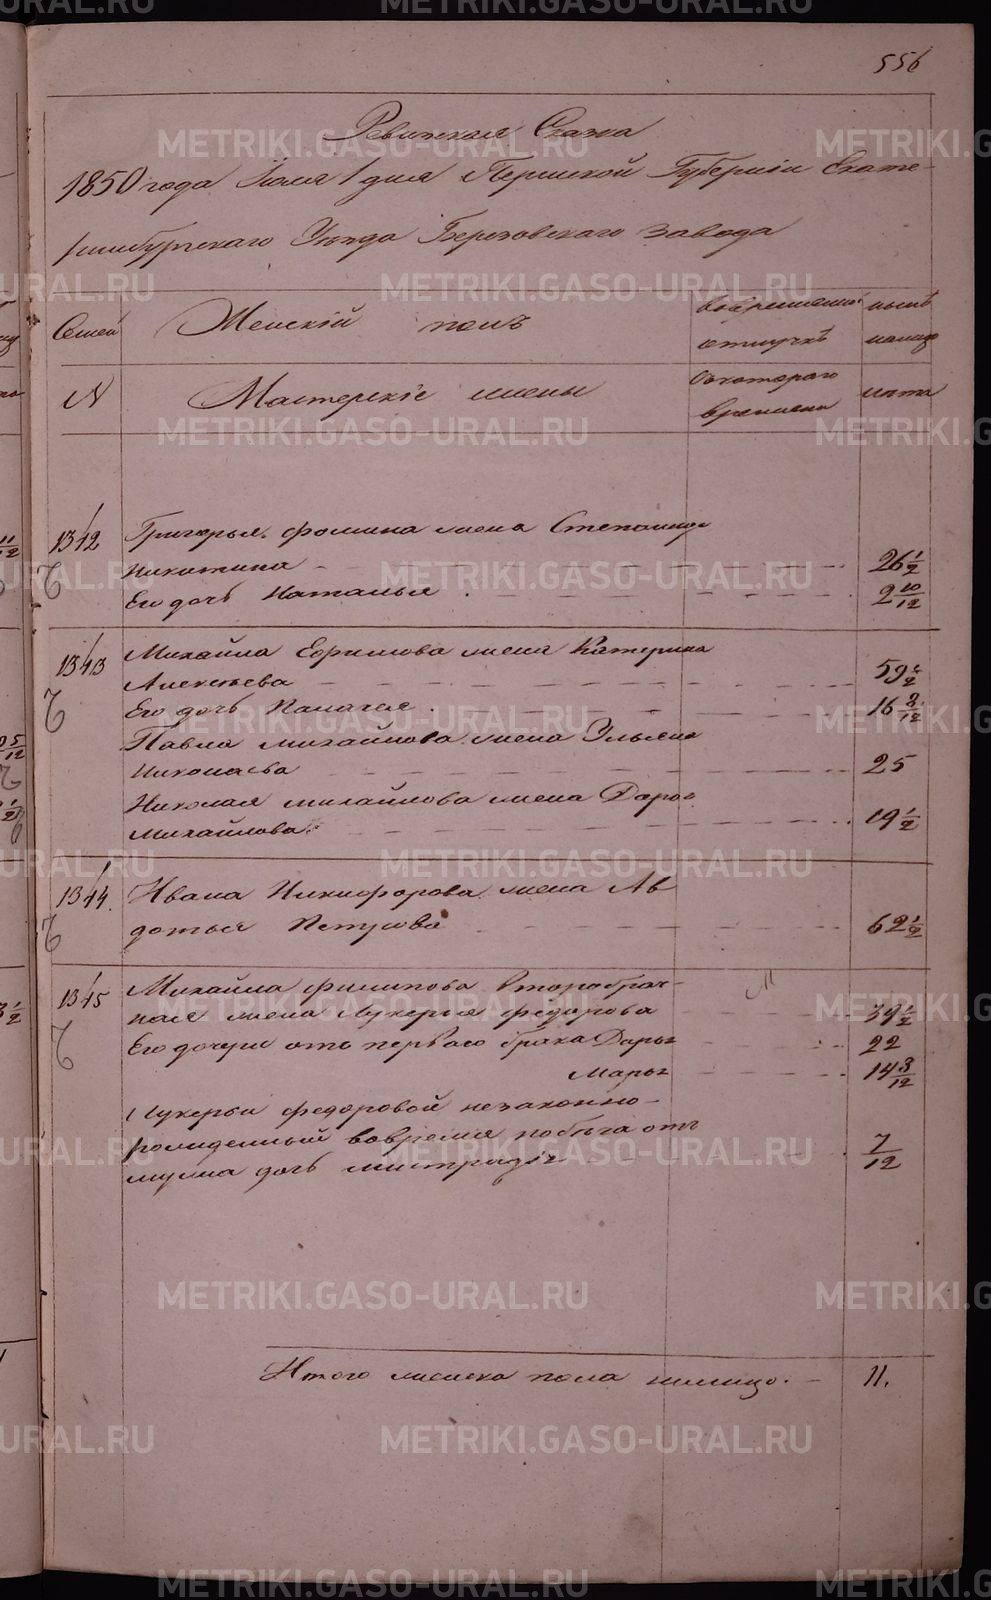 556
Ревижская Сказка
1850 года Маія 1 дня Пермской Губерніи Екате-
ринбургскаго Уезда Березовскаго завода
Семей Женскій полъ вовременной отлучкѣ ныне на лицо
N Мастерскіе жены Съ котораго времени лета
1342 Григорья Фомина жена Степанида
Никитина 26 1/2
Его дочь Наталья 2 10/12
1343 Михайла Ефимова жена Катерина
Алексѣева 59 1/2
Его дочь Палагея 16 3/12
Павла михайлова жена Ульяна
Николаева 25
Николая михайлова жена Дарья
Михайлова 19 1/2
1344 Ивана Никифорова жена Ав
дотья Петрова 62 1/2
1345 Михайла филипова Второбрач-
ная жена Лукерья федорова 39 1/2
Его дочери отъ перваго брака Дарья 22
Марья 14 3/12
Лукерьи федоровой незаконно-
рожденный вовремя побѣга отъ
мужа дочь 7/12
Итого женска пола налицо 11.
METRIKI.GASO-URAL.RU